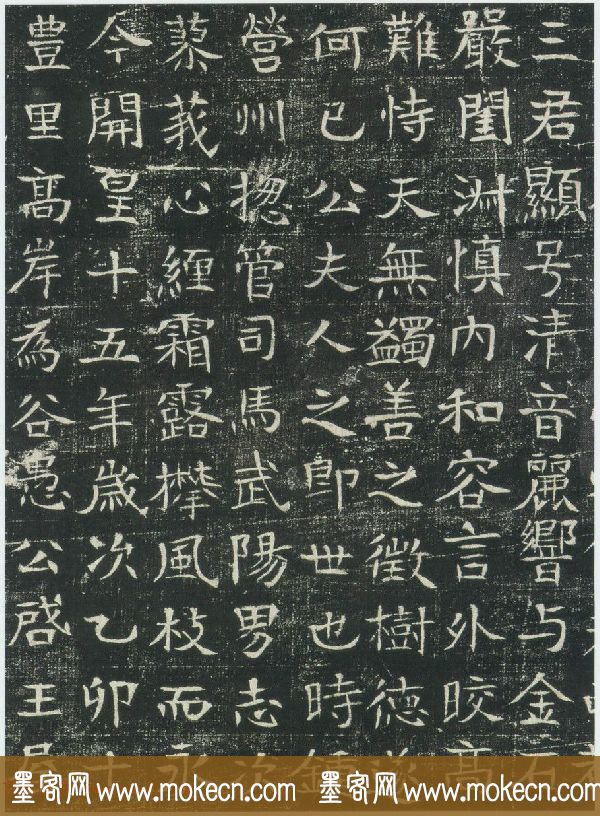 三君顯号清音麗響与金石
嚴閨淑慎内和容言外皎高
難恃天無蠲善之徵樹德
何已公夫人之即世也時鍾
營州揔管司馬武陽男志次
蓼莪心纏霜露攀風枝而永
今開皇十五年歲次乙卯十
豊里髙岸為谷愚公啓王
墨客网 www.mokecn.com 墨客网 www.mokecn.com